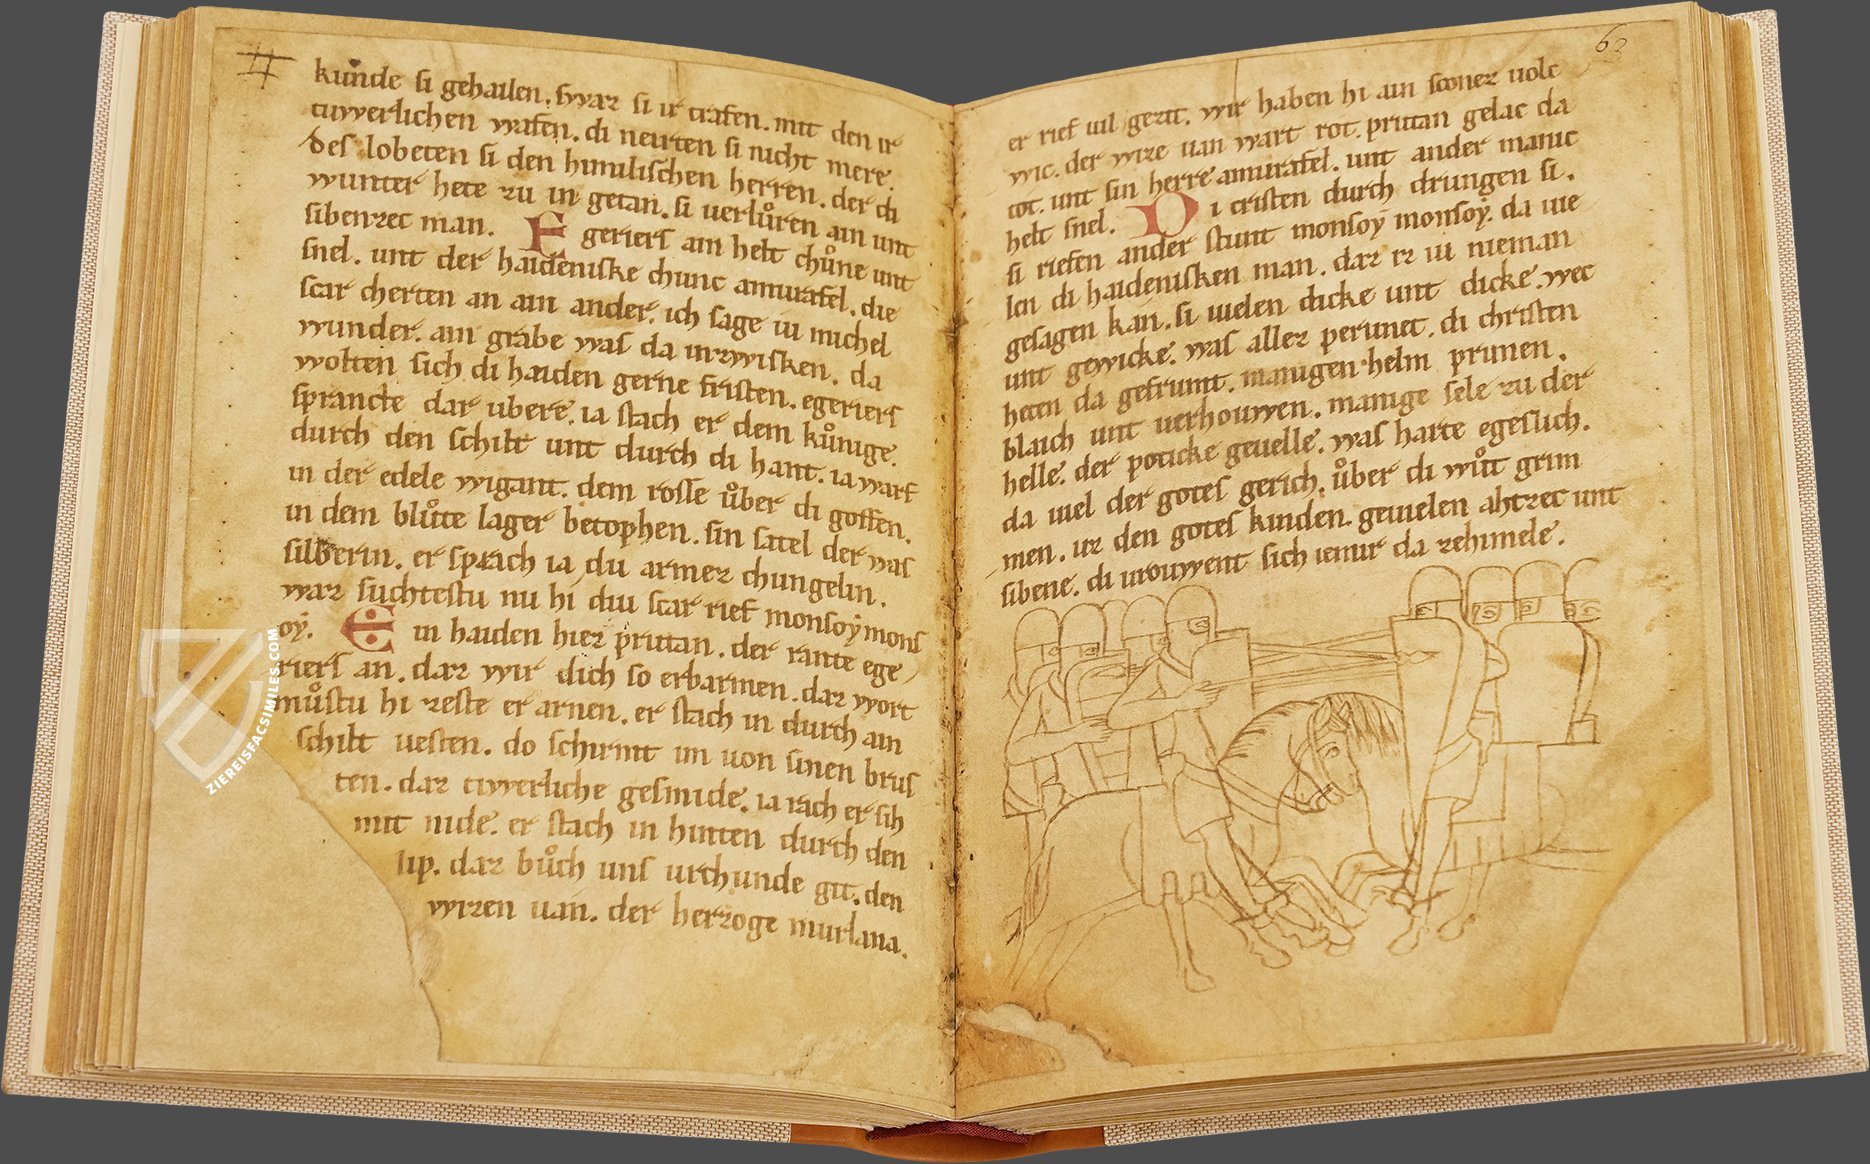 kunde si gehailen. swaz si ir trafen. mit den ir
tiwerlichen wafen. di neirten si nicht mere.
Des lobeten si den himilischen herren. der di
wunter hete zu in getan. si uerlůren ain unt
sibenzec man. E geriers ain helt chůne unt
snel. unt der haideniske chunc amurafel. die
scar cherten an ain ander. ich sage iu michel
wunder. ain grabe was da inzwisken. da
wolten sich di haiden gerne fristen. egeriers
sprancte dar ubere. ia stach er dem kůnige.
durch den schilt unt durch di hant. ia warf
in der edele wigant. dem rosse ůber di goffen.
in dem blůte lager betophen. sin satel der was
silberin. er sprach ia du armez chungelin.
waz suchtestu nu hi diu scar rief monsoy mons
oy. E in haiden hiez pritan. der rante ege
riers an. daz wir dich so erbarmen. daz wort
můstu hi zeste er arnen. er stach in durch ain
schilt uesten. do schirmt im uon sinen brus
ten. daz tiwerliche gesmide. ia rach er sih
mit nide. er stach in hinten durch den
lip. daz bůch uns urchunde git. den
wizen uan. der herzoge murlana.
63
er rief uil gezit. wir haben hi ain sconez uolc
wic. der wize uan wart rot. pritan gelac da
tot. unt sin herre amurafel. unt ander manic
helt snel. D i cristen durch drungen si.
si riefen ander stunt monsoy monsoy. da uie
len di haidenisken man. daz iz iu nieman
gesagen kan. si uielen dicke unt dicke. wec
unt gewicke. was allez perunet. di christen
heten da gefrumt. manigen helm prunen.
blaich unt uerhouwen. manige sele zu der
helle. der poticke geuelle. was harte egeslich.
da uiel der gotes gerich. ůber di wůt grim
men. uz den gotes kinden. geuielen ahtzec unt
sibene. di urouwent sich iemir da zehimele.
ZIEREISFACSIMILES.COM